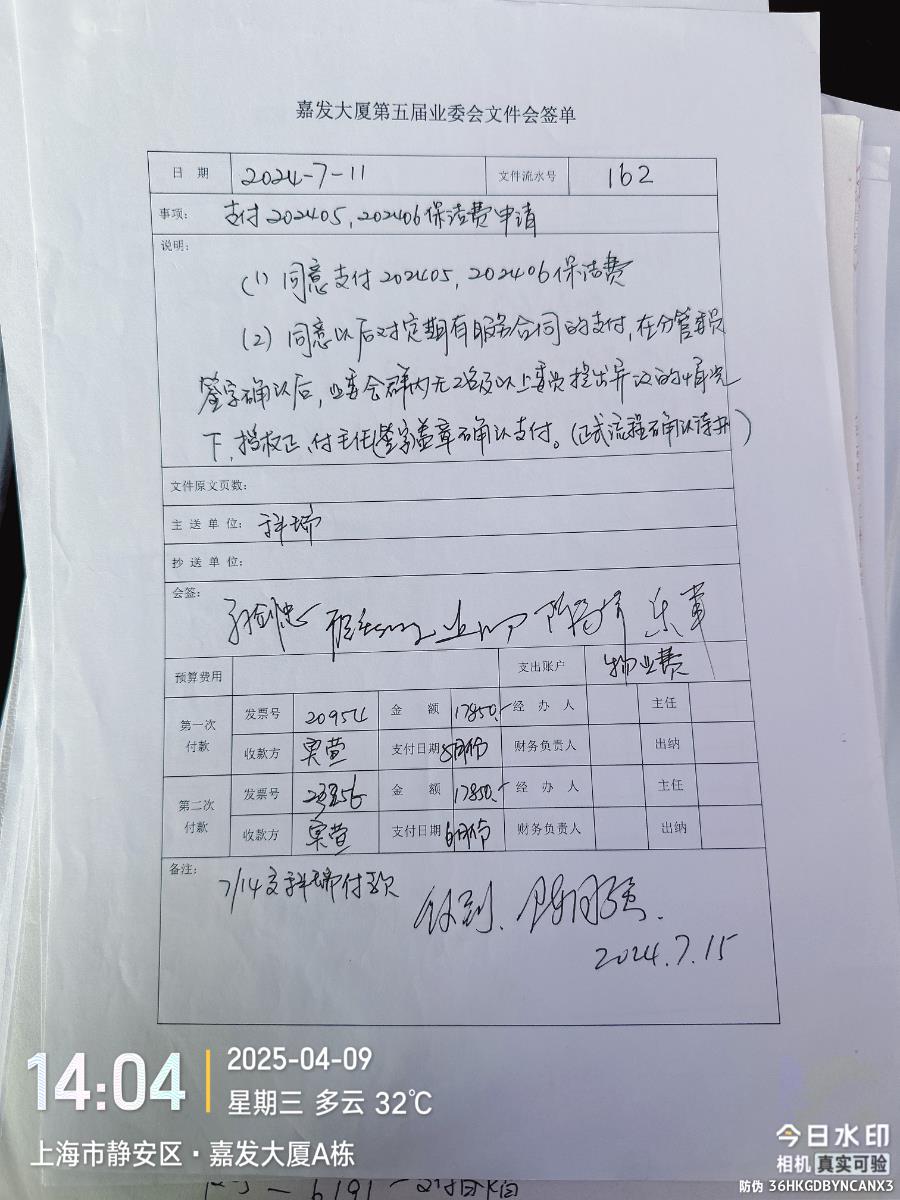 嘉发大厦第五届业委会文件会签单
日 期 2024-7-11 文件流水号 162
事项: 支付202405,202406保洁费申请
说明:
(1) 同意支付202405,202406保洁费
(2) 同意以后对定期有服务合同的支付,在分管委员
签字确认后,业委会群内无2名及以上委员提出异议的情况
下,授权正、付主任签字盖章确认支付。(正式流程确认待升)
文件原文页数:
主 送 单 位: 祥瑞
抄 送 单 位:
会签:
预算费用 支出账户 物业费
第一次付款 发票号 20954 金 额 17850.- 经 办 人 主任
收款方 支付日期 5月份 财务负责人 出纳
第二次付款 发票号 金 额 17850.- 经 办 人 主任
收款方 支付日期 6月份 财务负责人 出纳
备注:
7/14交祥瑞付款
收到.
2024.7.15
14:04 2025-04-09
星期三 多云 32℃
上海市静安区·嘉发大厦A栋
今日水印
相机 真实可验
防伪 36HKGDBYNCANX3